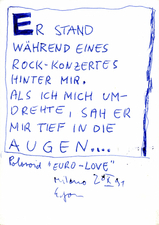 ER STAND
WÄHREND EINES
ROCK-KONZERTES
HINTER MIR.
ALS ICH MICH UM-
DREHTE, SAH ER
MIR TIEF IN DIE
AUGEN....
"EURO-LOVE"
Milano